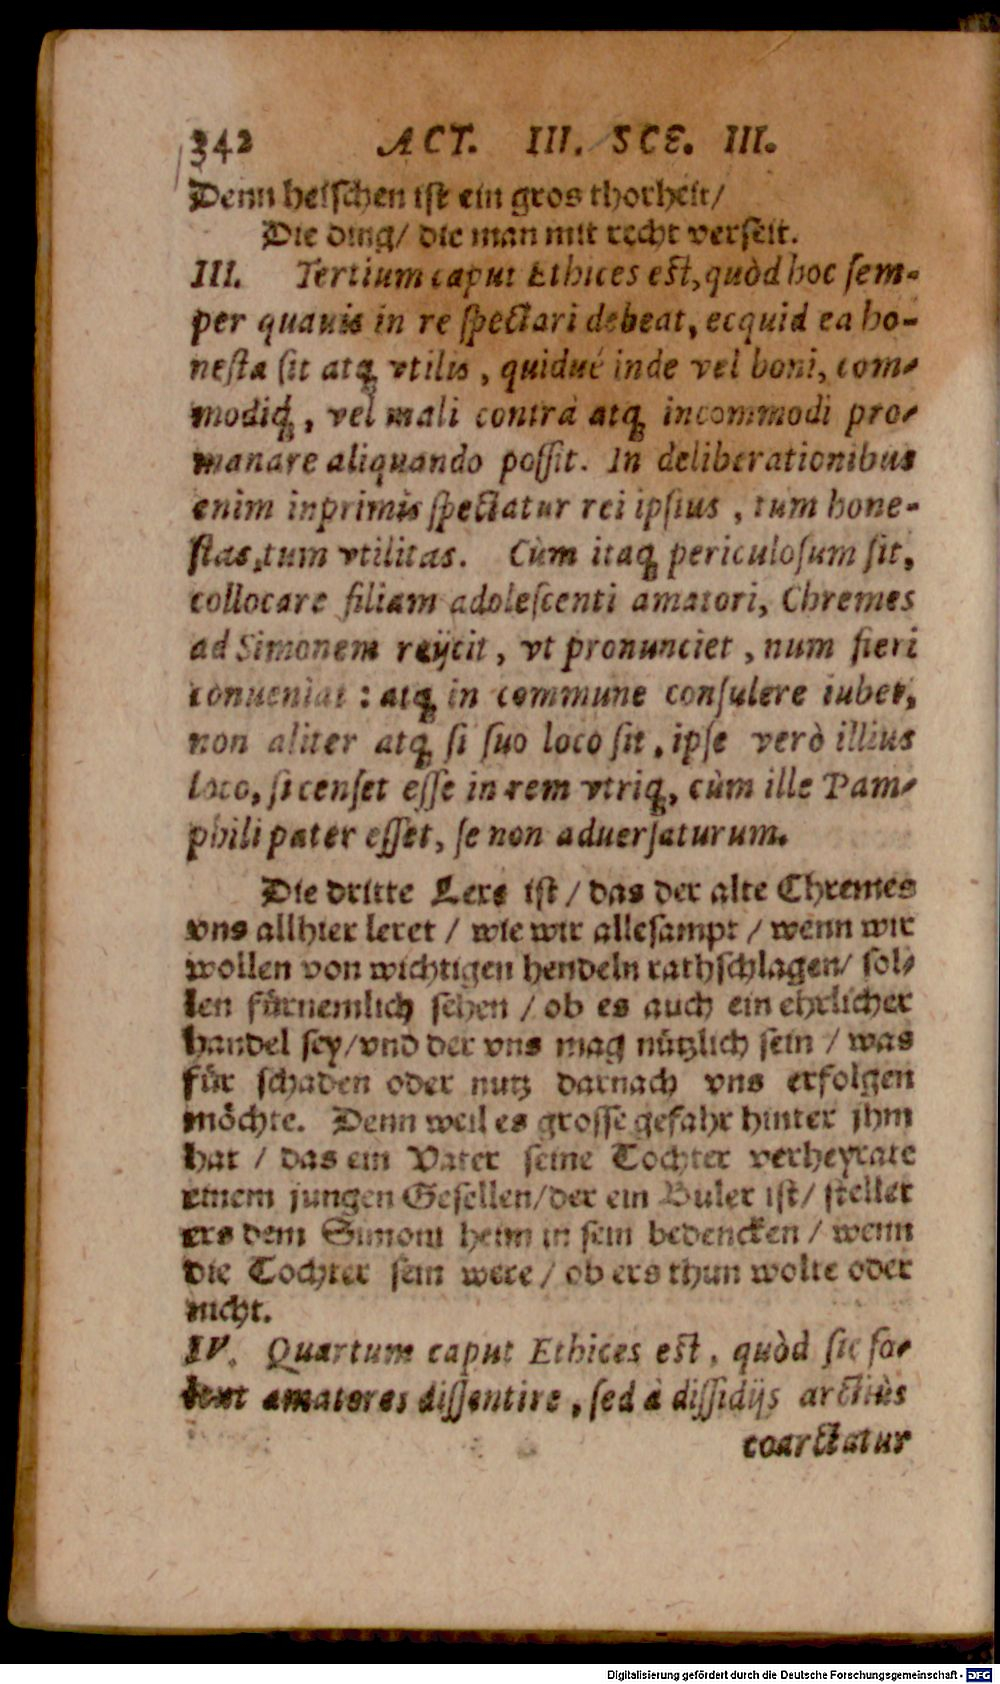 342 ACT. III. SCE. III.
Denn heiſchen iſt ein gros thorheit/
Die ding/ die man mit recht verſeit.
III. Tertium caput Ethices eſt, quòd hoc ſem-
per quauis in re ſpectari debeat, ecquid ea ho-
neſta ſit atq́; vtilis, quidué inde vel boni, com-
modiq́;, vel mali contrà atq́; incommodi pro-
manare aliquando poſſit. In deliberationibus
enim inprimis ſpectatur rei ipſius, tum hone-
ſtas, tum vtilitas. Cùm itaq́; periculoſum ſit,
collocare filiam adoleſcenti amatori, Chremes
ad Simonem reijcit, vt pronunciet, num fieri
conueniat: atq́; in commune conſulere iubet,
non aliter atq́; ſi ſuo loco ſit, ipſe verò illius
loco, ſi cenſet eſſe in rem vtriq́;, cùm ille Pam-
phili pater eſſet, ſe non aduerſaturum.
Die dritte Lere iſt / das der alte Chremes
vns allhier leret / wie wir alleſampt / wenn wir
wollen von wichtigen hendeln rathſchlagen/ ſol-
len fürnemlich ſehen / ob es auch ein ehrlicher
handel ſey/vnd der vns mag nützlich ſein / was
für ſchaden oder nutz darnach vns erfolgen
möchte. Denn weil es groſſe gefahr hinter jhm
hat / das ein Vater ſeine Tochter verheyrate
einem jungen Geſellen/der ein Buler iſt/ ſtellet
ers dem Simoni heim in ſein bedencken / wenn
die Tochter ſein were / ob ers thun wolte oder
nicht.
IV. Quartum caput Ethices eſt, quòd ſic ſo-
lent amatores diſſentire, ſed à diſſidijs arctiùs
coarctatur
Digitalisierung gefördert durch die Deutsche Forschungsgemeinschaft - DFG